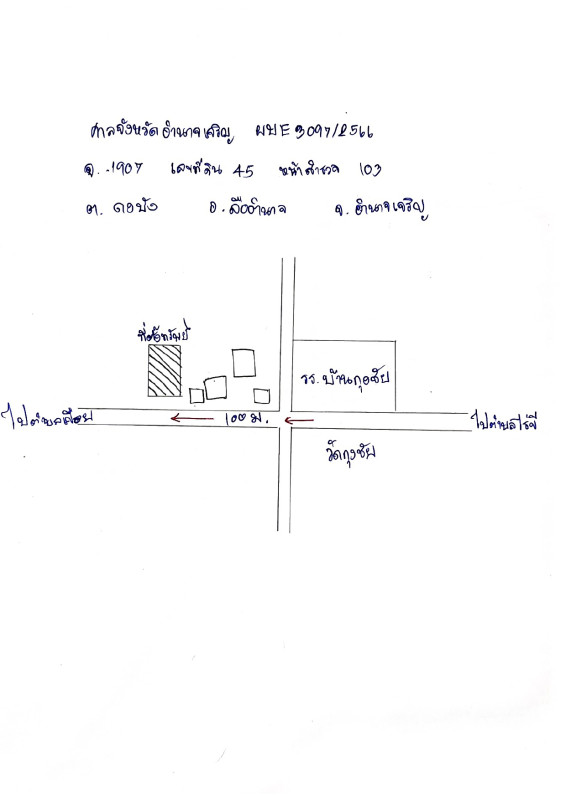 ศาลจังหวัดอำนาจเจริญ ผบE 3097/2566
จ. 1907 เลขที่ดิน 45 หน้าสำรวจ 103
ต. ดงบัง อ. ลืออำนาจ จ. อำนาจเจริญ
ที่ตั้งทรัพย์
รร. บ้านกุงชัย
ไปตำบลเปือย
100 ม.
ไปตำบลไร่ขี
วัดกุงชัย